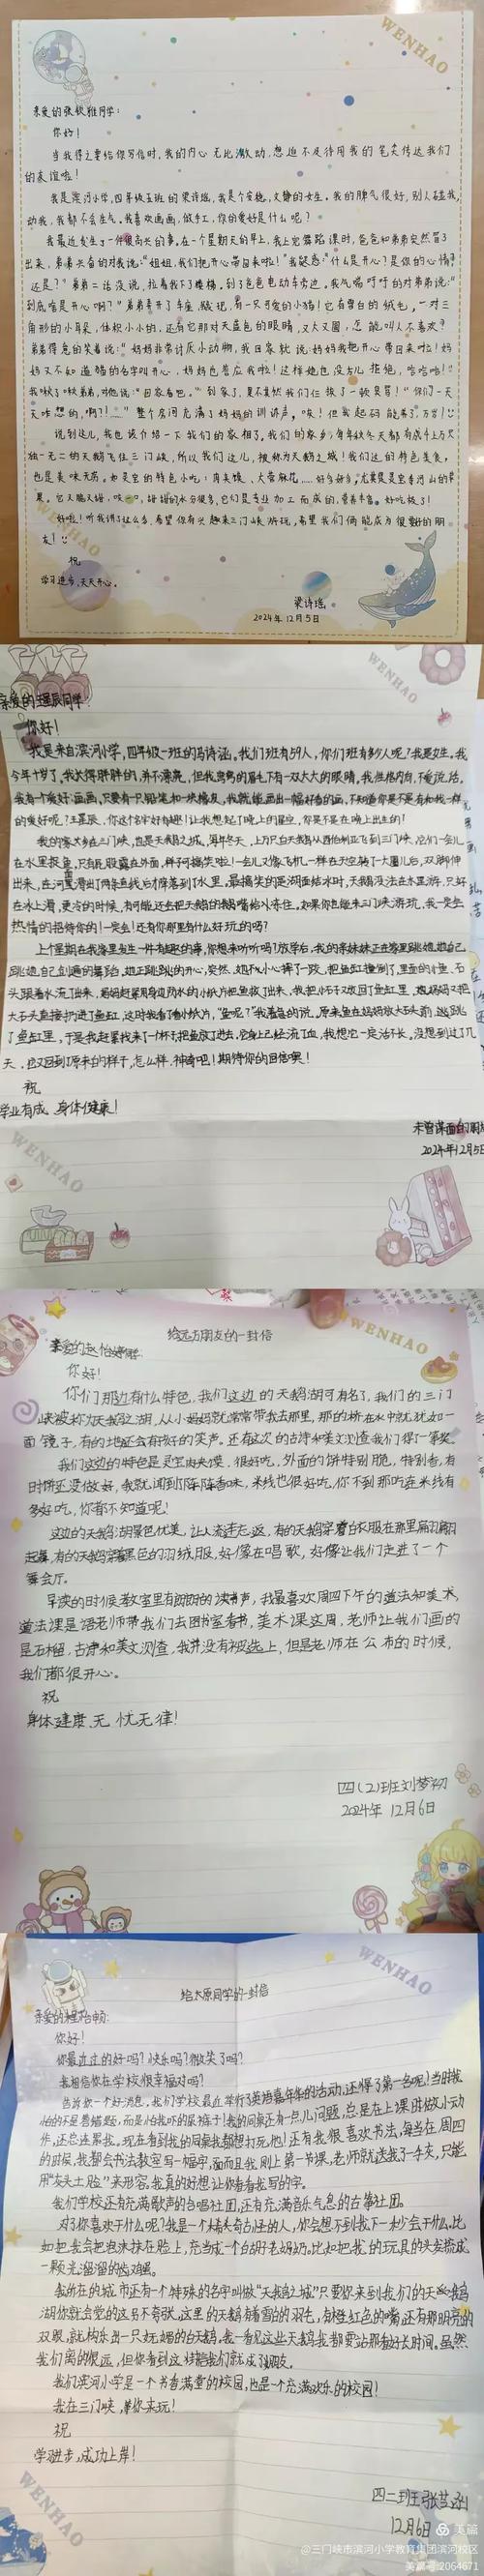 WENHAO
亲爱的张钦雅同学：
你好！
当我得之要给你写信时，我的内心无比激动，想迫不及待用我的笔尖传达我们
的友谊啦！
我是滨河小学，四年级五班的梁诗瑶，我是个安稳，文静的女生。我的脾气很好，别人碰我，
动我，我都不会生气。我喜欢画画，做手工，你的爱好是什么呢？
我最近发生了一件很高兴的事。在一个星期天的早上，我上完舞蹈课时，爸爸和弟弟突然冒了
出来，弟弟兴奋的对我说：“姐姐，我们把开心带回来啦！”我疑惑：“什么是开心？是你的心情
还是？”弟弟二话没说，拉着我下了楼梯。到了爸爸电动车旁边，我气喘吁吁的对弟弟说：“
到底啥是开心啊？”弟弟掀开了车座，发现，有一只可爱的小猫！它有雪白的绒毛，一对三
角形的小耳朵，体积小小的，还有它那对天蓝色的眼睛，又大又圆，怎能叫人不喜欢？
弟弟得意的笑着说：“妈妈非常讨厌小动物，我回家就说：妈妈我把开心带回来啦！妈
妈又不知道猫的名字叫开心，妈妈也答应我啦！这样她也没方儿拒绝，哈哈哈！”
我瞅了瞅弟弟，对他说：“回家看吧。”到家了，果不其然我们仨挨了一顿臭骂！“你们一天
天咋想的，啊？！……”整个房间充满了妈妈的训讲声，唉！但我起码能养了，万岁！
说到这儿，我也该介绍一下我们的家相了。我们的家乡，每年秋冬天都有成千上万只
独一无二的天鹅飞往三门峡，所以我们这儿，被称为天鹅之城！我们这的特色美食，
也是美味无穷。如灵宝的特色小吃：肉夹馍、大营麻花……好多好多，尤其是灵宝寺河山的苹
果。它又脆又甜，咬一口，甜甜的水分很多，它们是专业加工而成的，营养丰富。好吃极了！
好啦！听我讲了这么多，希望你有兴趣来三门峡游玩，希望我们俩能成为很要好的朋
友！
祝
学习进步，天天开心。
梁诗瑶
2024年12月5日
WENHAO
WENHAO
亲爱的王星辰同学：
你好！
我是来自滨河小学，四年级一班的马诗涵。我们班有59人，你们班有多少人呢？我是女生。我
今年十岁了，我长得胖胖的，并不漂亮，但我弯弯的眉毛下有一双大大的眼睛。我性格内向，不爱说话。
我有个爱好：画画，只要有一只铅笔和一块橡皮，我就能画出一幅好看的画，不知道你是不是有和我一样
的爱好呢？王星辰，你这个名字好有趣！让我想起了晚上的星空，你是不是在晚上出生的！
我的家乡在三门峡，也是天鹅之城。每年冬天，上万只白天鹅从西伯利亚飞到三门峡，它们一会儿
在水里捉鱼，只有屁股露在外面，样子可搞笑啦！一会儿又像飞机一样在天空转了大圈儿后，双脚伸
出来，在河里滑出了两条直线后才降落到了水里。最搞笑的是湖面结冰时，天鹅没法在水里游，只好
在冰上滑，更冷的时候，有可能还会把天鹅的鹅嘴给冰冻住。如果你也能来三门峡游玩，我一定会
热情的招待你的！一定会！还有你那里有什么好玩的吗？
上个星期在我家里发生一件有趣的事，你想来听听吗？放学后，我的亲妹妹正在家里跳她自己
跳她自己创编的舞蹈，她正跳跳的开心，突然，她不小心摔了一跤，把鱼缸撞倒了，里面的小鱼、石
头跟着水流了出来，妈妈赶紧用身边防水的小纸片把鱼救了出来，我把小石子又放回了鱼缸里，
祝
学业有成，身体健康！
未曾谋面的朋友
2024年12月5日
WENHAO
WENHAO
给远方朋友的一封信
你好！
你们那边有什么特色，我们这边的天鹅湖可有名了，我们的三门
峡被称为天鹅之湖，从小妈妈就常常带我去那里，那的桥在水中就犹如一
面镜子，有的地还会有孩子的笑声。还有这次的古诗和美文浏查我们得了一等奖。
我们这边的特色是灵宝肉夹馍，很好吃，外面的饼特别脆，特别香，有
时饼还没做好，我就闻到了阵阵香味，米线也很好吃，你不到那吃这米线有
多好吃，你都不知道呢！
这边的天鹅湖景色优美，让人流连忘返，有的天鹅穿着白衣服在那里扇翩翩
起舞，有的天鹅穿着黑色的羽绒服，好像在唱歌，好像让我们走进了一个
舞会厅。
早读的时候教室里有朗朗的读书声，我最喜欢周四下午的道法和美术，
道法课是语老师带我们去图书室看书，美术课这周，老师让我们画的
是石榴，古诗和美文浏查，我并没有被选上，但是老师在公布的时候，
我们都很开心。
祝
身体建康，无忧无律！
四（2）班刘梦初
2024年12月6日
WENHAO
WENHAO
给太原同学的一封信
你好！
你最近过的好吗？快乐吗？微笑了吗？
我相信你在学校很幸福对吗？
告诉你一个好消息，我们学校最近举行了英语嘉年华的活动，还得了第一名呢！当时我
我们学校还有充满歌声的合唱社团，还有充满音乐气息的古筝社团。
对了你喜欢干什么呢？我是一个稀奇古怪的人，你会想不到我下一秒会干什么，比
如把我会把泡沫抹在脸上，充当成一个白胡子老奶奶。比如把我的玩具的头发梳成
一颗光溜溜的卤鸡蛋。
我所在的城市还有一个特殊的名字叫做“天鹅之城”只要你来到我们的天鹅
湖你就会觉的这另不夸张，这里的天鹅有着雪白的羽毛，有橙红色的嘴还有那明亮的
双眼，就构乐出一只妩媚的白天鹅。我一看见这些天鹅我都要站那看好长时间。虽然
我们离的很远，但你看到这封信我们就成了朋友。
我们滨河小学是一个书香满堂的校园，也是一个充满欢乐的校园！
我在三门峡，等你来玩！
祝
学习进步，成功上岸！
四二班张芷涵
12月6日
WENHAO
美篇
@三门峡市滨河小学教育集团滨河校区
美篇号:2064671